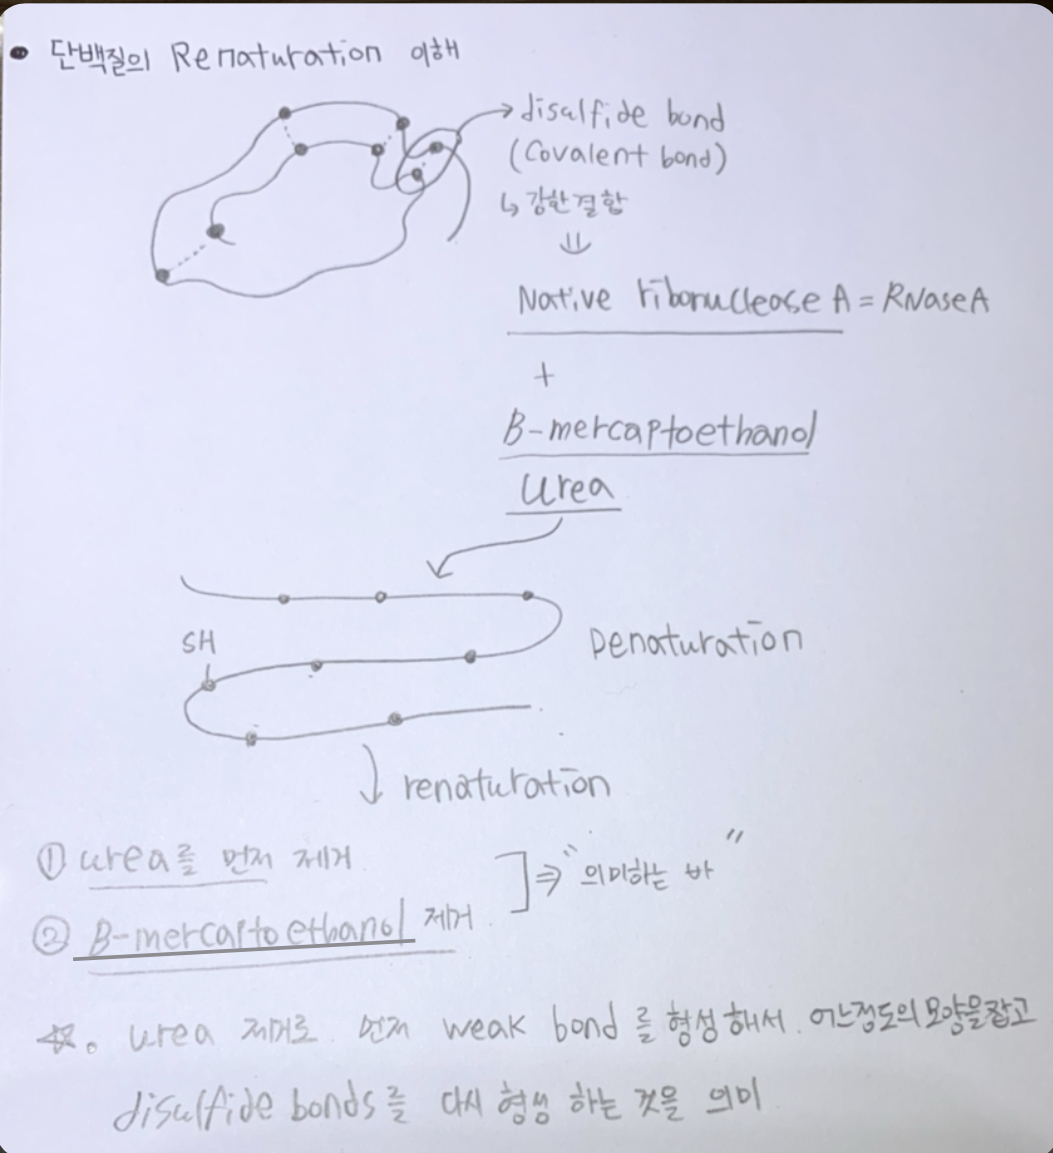 • 단백질의 Renaturation 이해
→ disulfide bond
(Covalent bond)
↳ 강한결합
⇓
Native ribonuclease A = RNaseA
+
B-mercaptoethanol
Urea
SH
Denaturation
renaturation
① urea를 먼저 제거
② B-mercaptoethanol 제거
] ⇒ "의미하는 바"
☆. urea 제거로 먼저 weak bond를 형성해서. 어느정도의 모양을잡고
disulfide bonds를 다시 형성 하는 것을 의미